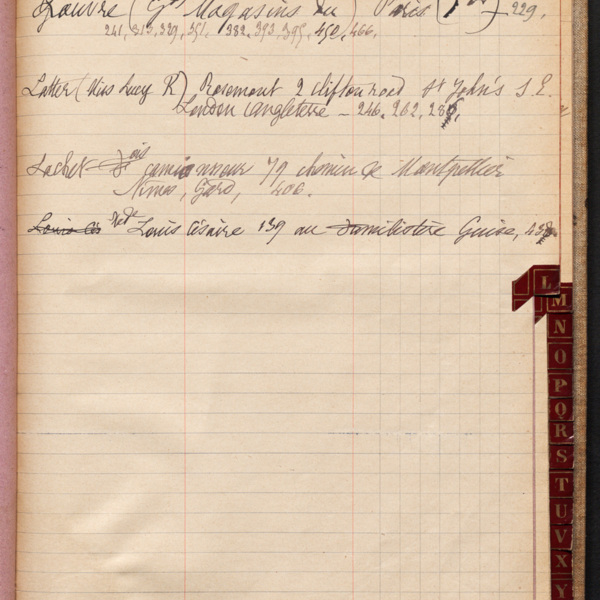 Louvre (Gds Magasins du) Paris 229,
241, 313, 339, 351, 382, 393, 395, 450, 466.
Latter (Miss Lucy R) Rosemont 2 clifton road St John's S.E.
London Angleterre – 246, 262, 286,
camionneur 79 chemin de Montpellier
Nimes, Gard, 406.
Louis Césaire 139 au Familistère Guise,
L
M
N
O
P
Q
R
S
T
U
V
X
Y